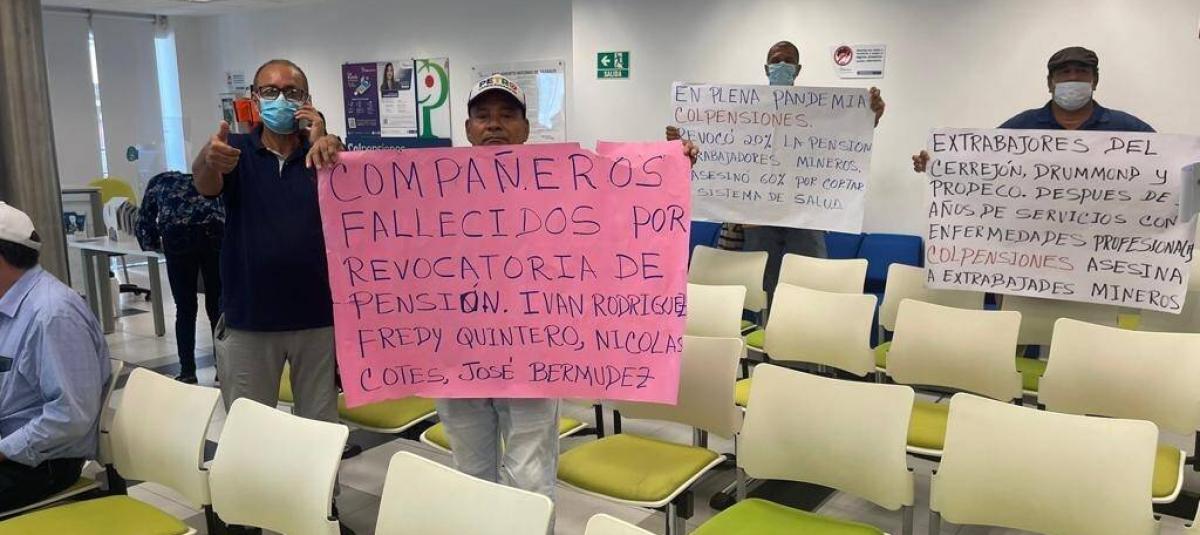 COMPAÑEROS
FALLECIDOS POR
REVOCATORIA DE
PENSIÓN. IVAN RODRIGUEZ
FREDY QUINTERO, NICOLAS
COTES, JOSÉ BERMUDEZ
EN PLENA PANDEMIA
COLPENSIONES.
REVOCÓ 20% LA PENSIÓN
TRABAJADORES MINEROS.
ASESINÓ 60% POR CORTAR
SISTEMA DE SALUD
EXTRABAJORES DEL
CERREJÓN, DRUMMOND Y
PRODECO. DESPUES DE
AÑOS DE SERVICIOS CON
ENFERMEDADES PROFESIONALES
COLPENSIONES ASESINA
A EXTRABAJADES MINEROS
SALIDA
Colpensiones
PETRO